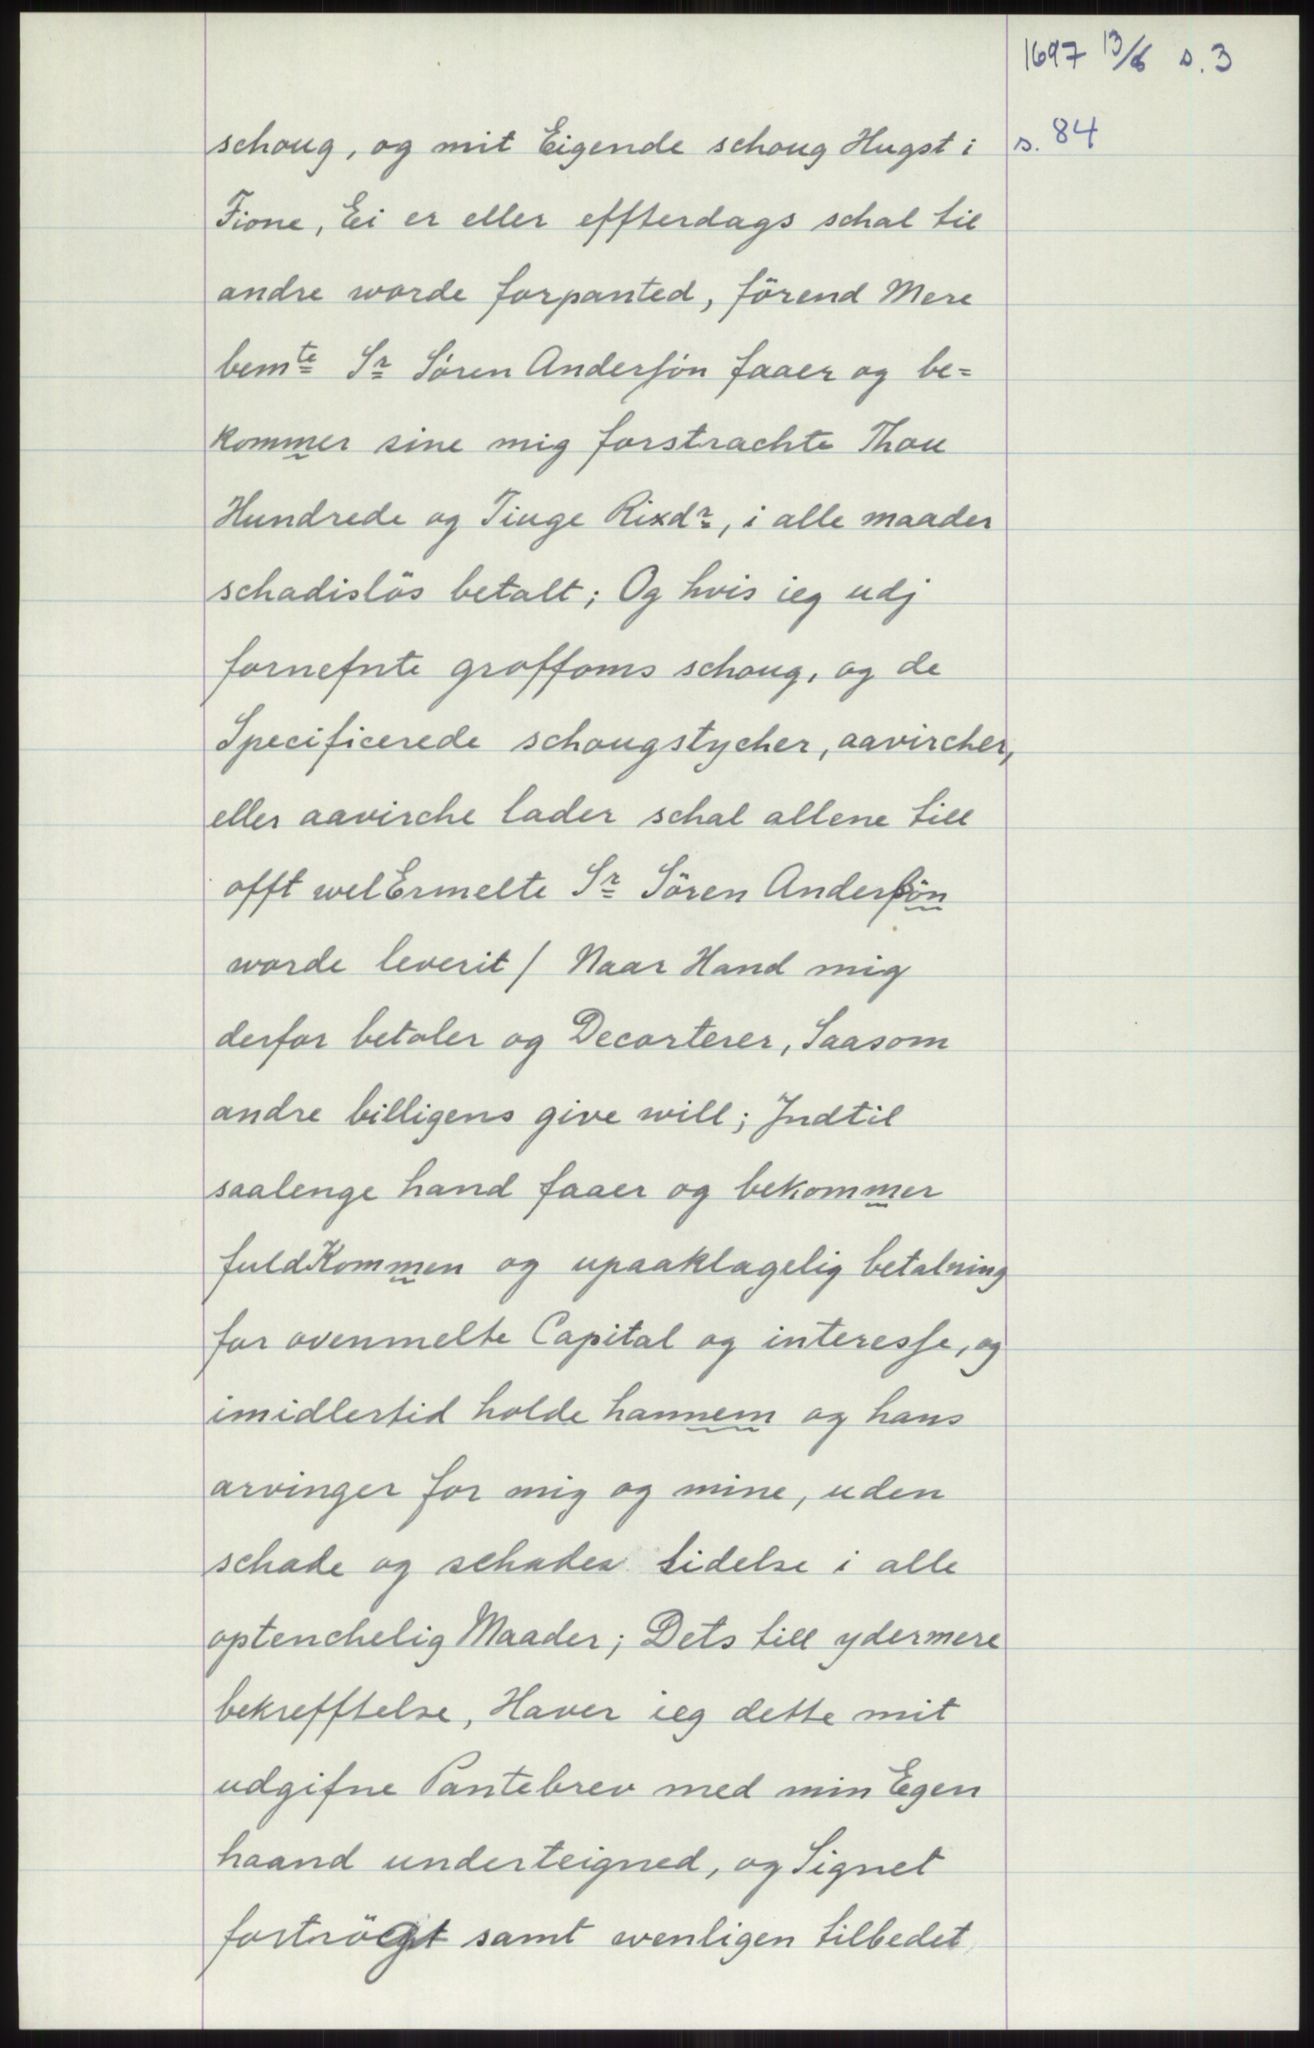 1697 13/6 s. 3
s. 84
schoug, og mit Eigende schoug Hugst i
Fione, Ei er eller effterdags schal til
andre worde forpanted, förend Mere
bemte Sr Sören Anderſön faaer og be=
kommer sine mig forstrachte Thou
Hundrede og Tiuge Rixdr, i alle maader
schadislös betalt; Og hvis ieg udj
fornefnte groffoms schoug, og de
Specificerede schougstycher, aavircher,
eller aavirche lader schal allene till
offt welErmelte Sr Sören Anderſön
worde leverit / Naar Hand mig
derfor betaler og Decorterer, Saasom
andre billigens give will; Indtil
saalenge hand faaer og bekommer
fuldKommen og upaaklagelig betalning
for ovenmelte Capital og intereſse, og
imidlertid holde hannem og hans
arvinger for mig og mine, uden
schade og schades lidelse i alle
optenchelig Maader; Dets till ydermere
bekrefftelse, Haver ieg dette mit
udgifne Pantebrev med min Egen
haand underteigned, og Signet
fortrögt samt wenligen tilbedet